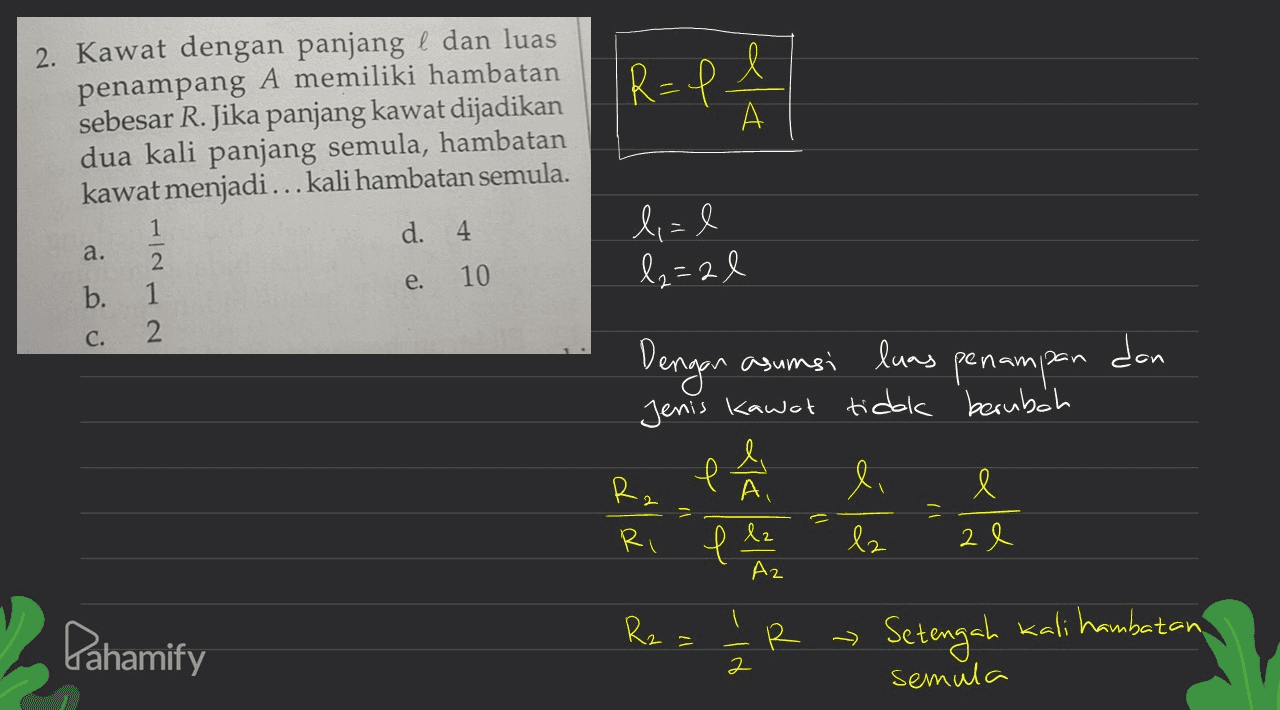 2. Kawat dengan panjang ℓ dan luas
penampang A memiliki hambatan
sebesar R. Jika panjang kawat dijadikan
dua kali panjang semula, hambatan
kawat menjadi ... kali hambatan semula.
a. 1/2
b. 1
c. 2
d. 4
e. 10
R = ρ l/A
l₁ = l
l₂ = 2l
Dengan asumsi luas penampan dan
Jenis kawat tidak berubah
R₂/R₁ = (ρ l₁/A₁)/(ρ l₂/A₂) = l₁/l₂ = l/2l
R₂ = 1/2 R → Setengah kali hambatan
semula
Pahamify